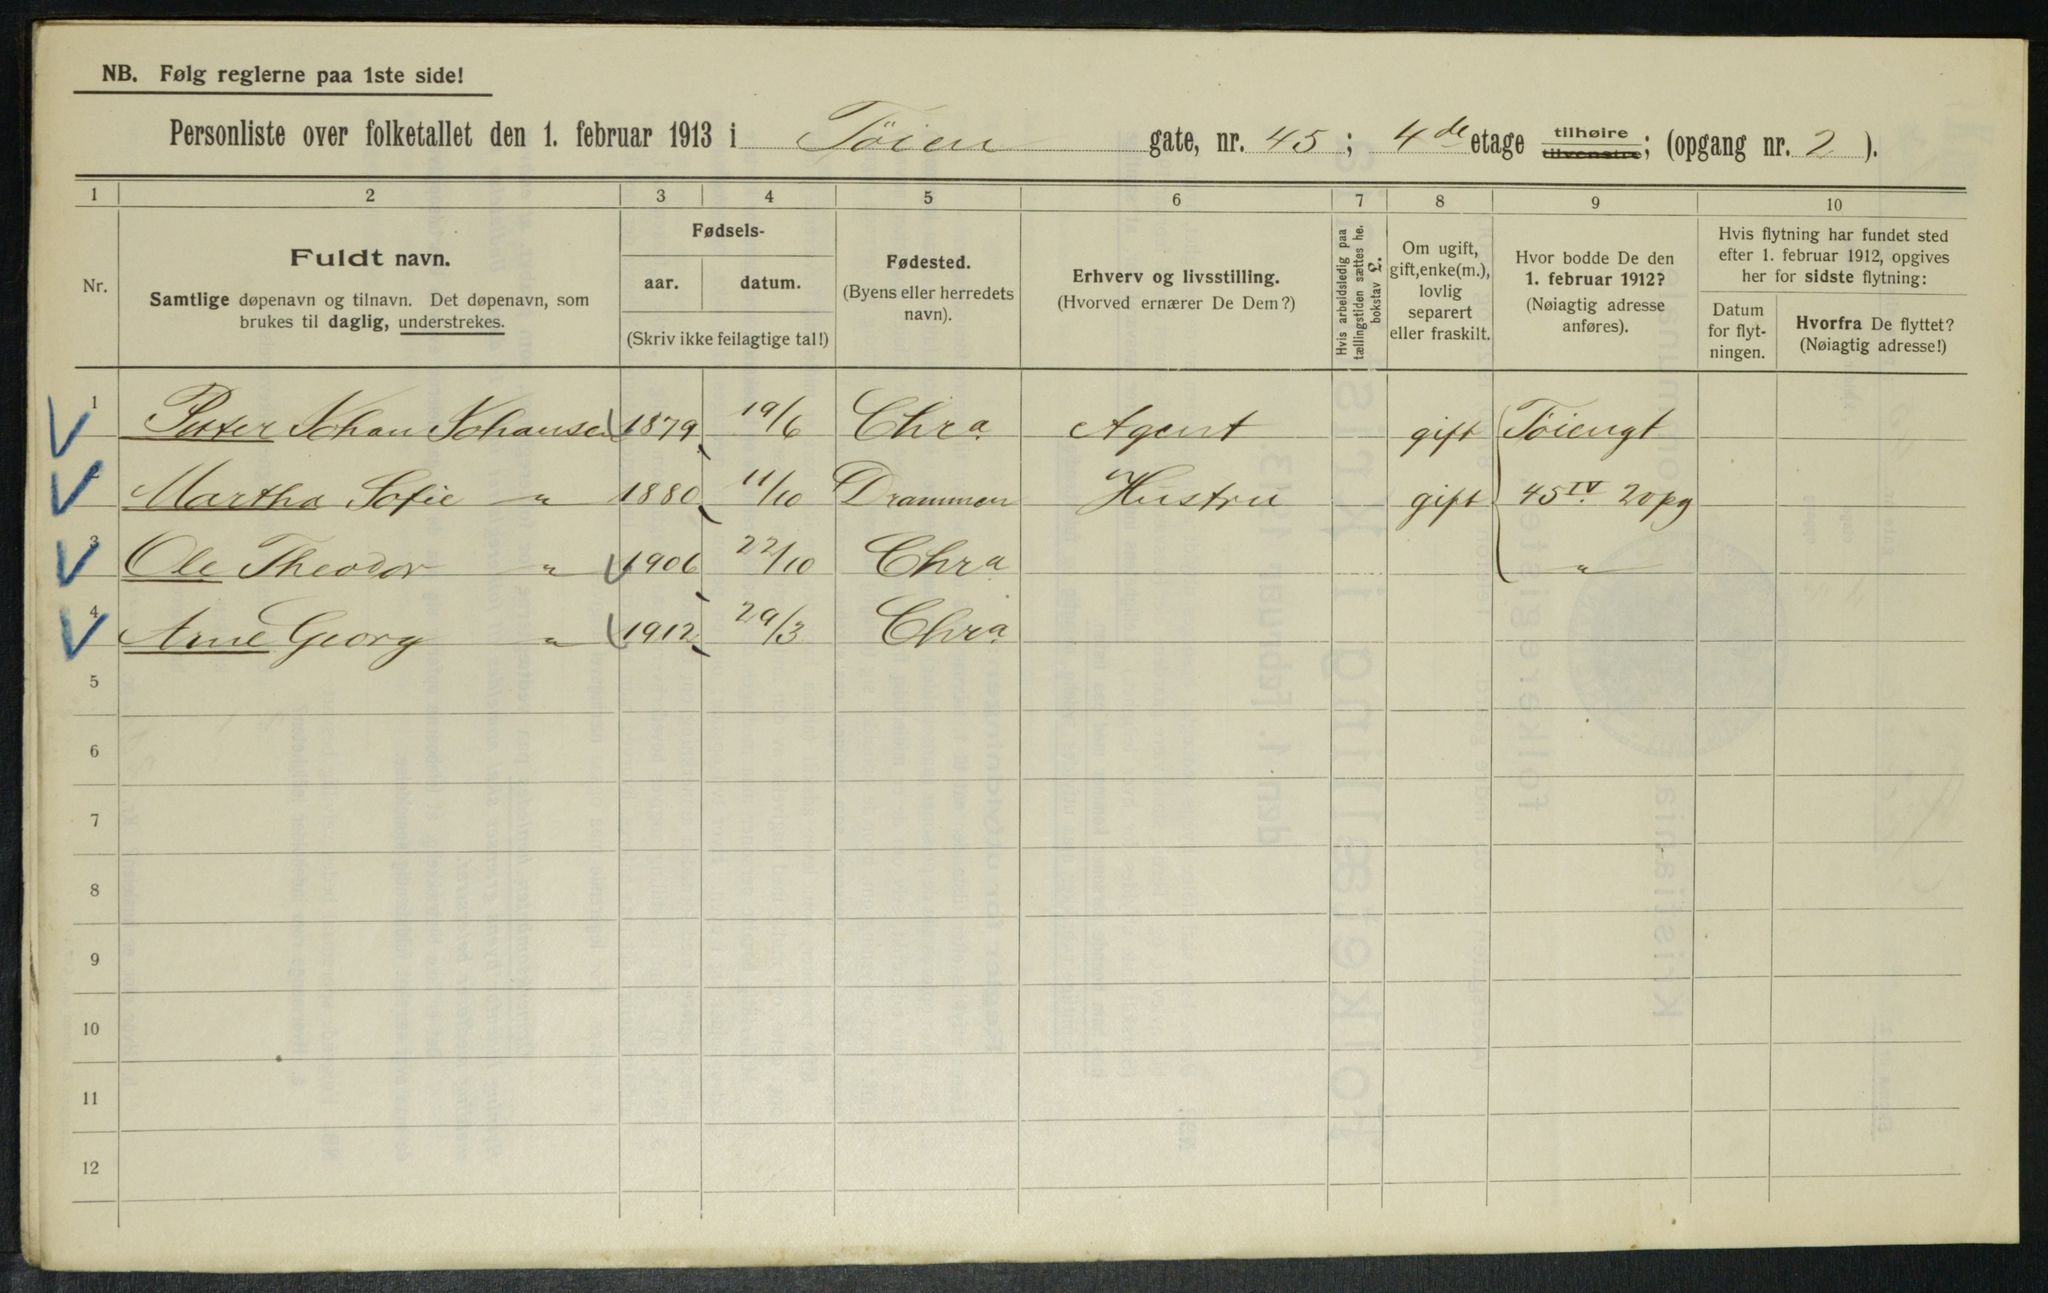 NB. Følg reglerne paa 1ste side!
Personliste over folketallet den 1. februar 1913 i Tøien gate, nr. 45 ; 4de etage tilhøire tilvenstre; (opgang nr. 2 ).
1 2 3 4 5 6 7 8 9 10
Nr.
Fuldt navn.
Samtlige døpenavn og tilnavn. Det døpenavn, som
brukes til daglig, understrekes.
Fødsels-
aar. datum.
(Skriv ikke feilagtige tal!)
Fødested.
(Byens eller herredets
navn).
Erhverv og livsstilling.
(Hvorved ernærer De Dem?)
Hvis arbeidsledig paa
tællingstiden sættes he.
bokstav g.
Om ugift,
gift, enke(m.),
lovlig
separert
eller fraskilt.
Hvor bodde De den
1. februar 1912?
(Nøiagtig adresse
anføres).
Hvis flytning har fundet sted
efter 1. februar 1912, opgives
her for sidste flytning:
Datum
for flyt-
ningen.
Hvorfra De flyttet?
(Nøiagtig adresse!)
1 Peter Johan Johansen 1879 19/6 Chra. Agent gift Tøiengt
2 Martha Sofie " 1880 11/10 Drammen Hustru gift 45 IV 2 opg
3 Ole Theodor " 1906 22/10 Chra "
4 Arne Georg " 1912 29/3 Chra.
5
6
7
8
9
10
11
12